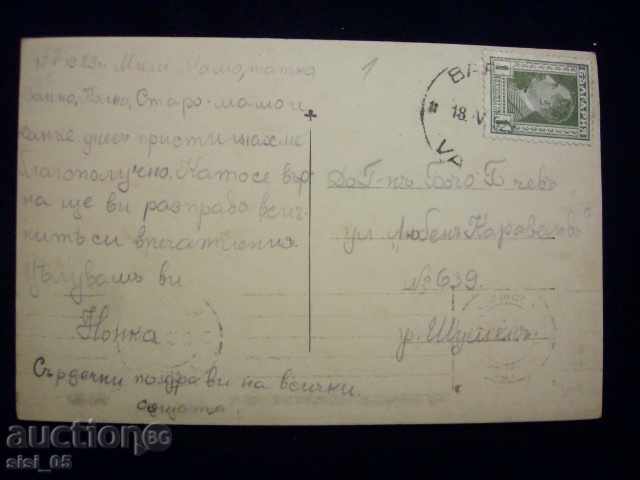 Мили Мамо, татко
Ванко, Пенко, Старо-мамо и
днес пристигнахме
благополучно. Като се вър-
на ще ви разправя всич-
китѣ си впечатления
Цѣлувамъ ви
Нонка
Сърдечни поздрави на всички.
същата.
1
18. V
До Г-нъ Бочо Б чевъ
ул. „Любенъ Каравеловъ"
№ 639.
гр. Шуменъ.
auctionBG
sisi_05